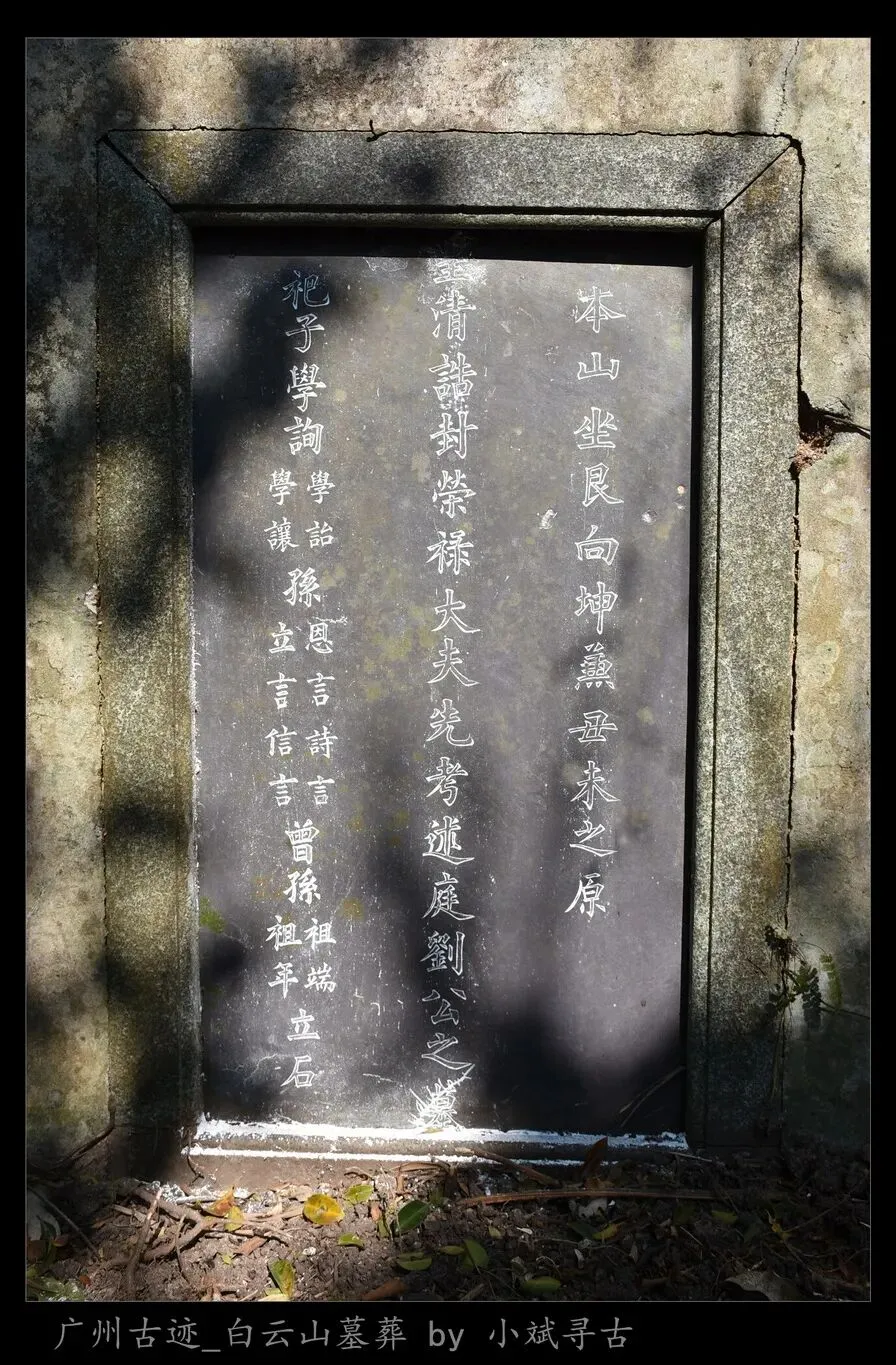 本山坐艮向坤兼丑未之原
皇清誥封榮禄大夫先考述庭劉公之墓
祀子學詢學詒學讓孫恩言詩言立言信言曾孫祖端祖年立石
广州古迹_白云山墓葬 by 小斌寻古